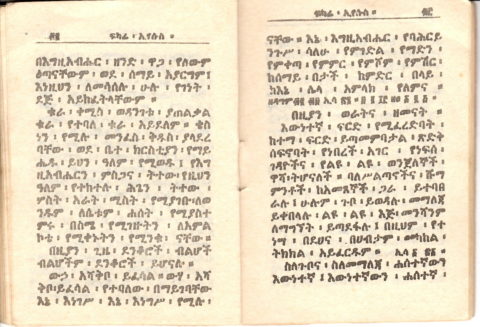 ፍካሬ ፡ ኢየሱስ ።
በእግዚአብሔር ፡ ዘንድ ፡ ዋጋ ፡ የለውም
ዕጣናቸውም ፡ ወደ ፡ ሰማይ ፡ አያርግም፤
እነዚህን ፡ ለመሳሰሉ ፡ ሁሉ ፡ የገነት ፡
ደጅ ፡ አይከፈትላቸውም ።
ቁራ ፡ ቀሚስ ፡ ወዳንገቱ ፡ ያጠልቃል
ቁራ ፡ የተባለ ፡ ቁራ ፡ አይደለም ። ቄስ
ነን ፡ የሚሉ ፡ መንፈስ ፡ ቅዱስ ፡ ያላደረ
ባቸው ፡ ወደ ፡ ቤተ ፡ ክርስቲያን ፡ የማይ
ሔዱ ፡ ይህን ፡ ዓለም ፡ የሚወዱ ፡ የእግ
ዚአብሔርን ፡ ምስጋና ፡ ትተው ፡ የዚህን
ዓለም ፡ የተከተሉ ፡ ሕጌን ፡ ትተው ፡
ሦስት ፡ አራት ፡ ሚስት ፡ የሚያገቡ ፡ለወ
ንዱም ፡ ለሴቱም ፡ ሐሰት ፡ የሚያስተ
ምሩ ፡ በስሜ ፡ የሚነግዱትን ፡ ለእምል
ኮቴ ፡ የሚቀኑትን ፡ የሚንቁ ፡ ናቸው ።
በዚያን ፡ ጊዜ ፡ ደንቆሮች ፡ ብልሆች
ብልሆችም ፡ ደንቆሮች ፡ ይሆናሉ ።
ውኃ ፡ አሻቅቦ ፡ ይፈሳል ። ውሃ ፡ አሻ
ቅቦ ፡ይፈሳል ፡ የተባለው ፡ በማይገባቸው
እኔ ፡ እነግሥ ፡ እኔ ፡ እነግሥ ፡ የሚሉ ፡
ፍካሬ ፡ ኢየሱስ ።
ናቸው ። እኔ ፡ እግዚአብሔር ፡ የባሕርይ
ንጉሥ ፡ ሳለሁ ፡ የምገድል ፡ የማድን ፡
የምቀጣ ፡ የምምር ፡ የምሾም ፡ የምሽር ፡
ከሰማይ ፡ በታች ፡ ከምድር ፡ በላይ ፡
ከእኔ ፡ ሌላ ፡ አምላክ ፡ የለምና ።
በዚያን ፡ ወራትና ፡ ዘመናት ፡
እውነተኛ ፡ ፍርድ ፡ የሚፈረድባት ፡
ከተማ ፡ ፍርድ ፡ ይጣመምባታል ፡ ጽድቅ
ሰፍኖባት ፡ የነበረች ፡ አገር ፡ የነፍሰ ፡
ገዳዮችና ፡ የልዩ ፡ ልዩ ፡ ወንጀለኞች ፡
ዋሻ፡ትሆናለች ። ባለሥልጣኖችና ፡ ሹማ
ምንቶች ፡ ከአመጸኞች ፡ ጋራ ፡ ይተባበ
ራሉ ፡ ሁሉም ፡ ጉቦ ፡ ይወዳሉ ፡ መማለጃ
ይቀበላሉ ፡ ልዩ ፡ ልዩ ፡ እጅ፡ መንሻንም
ለማግኘት ፡ ይጣደፋሉ ፤ በዚህም ፡ የተ
ነሣ ፡ በደሀና ፡ በሀብታም ፡ መካከል ፡
ትክክል ፡ አይፈርዱም ።
ስለጉቦና ፡ ስለመማለጃ ፡ ሐሰተኛውን
እውነተኛ ፤ እውነተኛውን ፡ ሐሰተኛ ፡